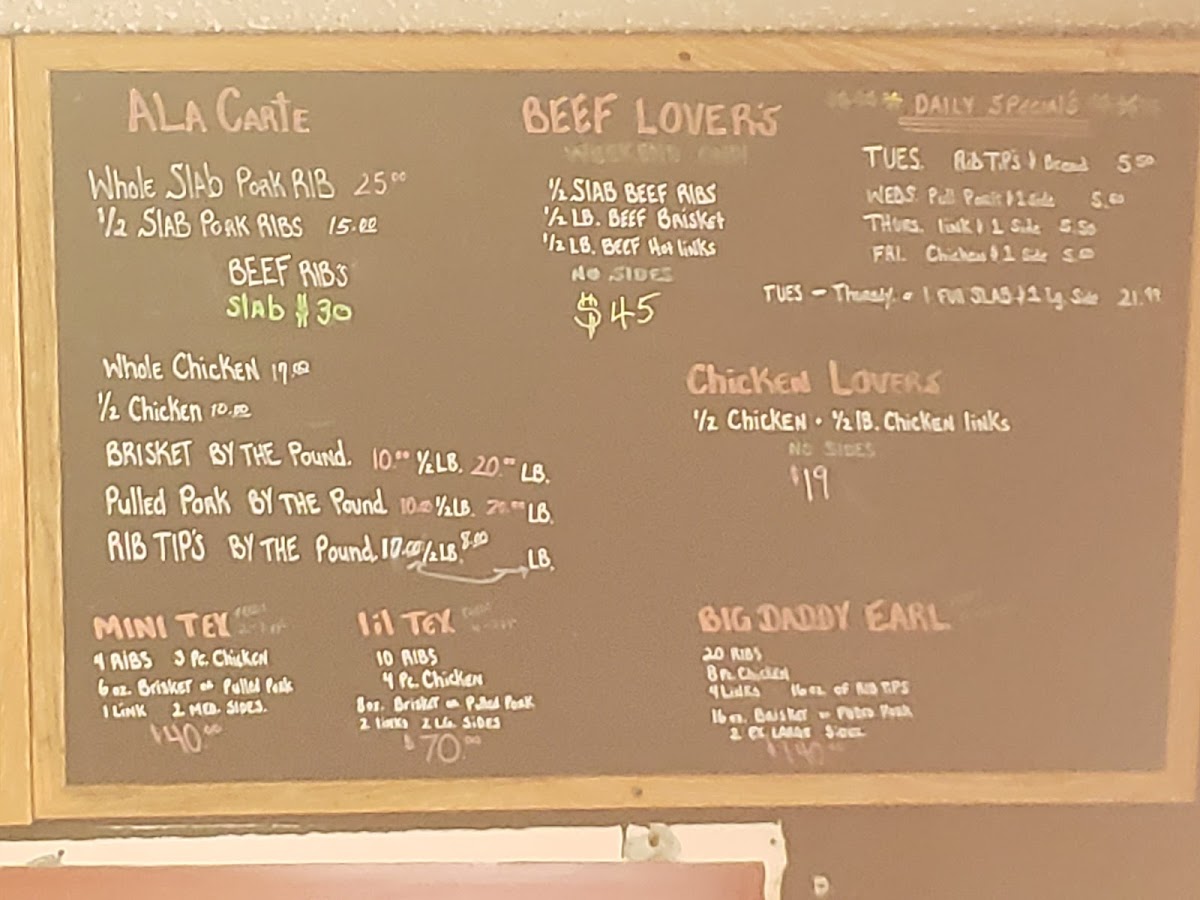 ALA CARTE
WHOLE SLAB PORK RIB 25⁰⁰
1/2 SLAB PORK RIBS 15.00
BEEF RIB'S
SLAB $30
WHOLE CHICKEN 17.00
1/2 CHICKEN 10.00
BRISKET BY THE POUND. 10.⁰⁰ 1/2 LB. 20.⁰⁰ LB.
PULLED PORK BY THE POUND 10.00 1/2 LB. 20.⁰⁰ LB.
RIB TIP'S BY THE POUND. 1/2 LB. 8.00 LB.
BEEF LOVER'S
WEEKEND
1/2 SLAB BEEF RIBS
1/2 LB. BEEF BRISKET
1/2 LB. BEEF HOT LINKS
NO SIDES
$45
DAILY SPECIAL'S
TUES. RIB TIP'S & BREAD 5⁵⁰
WEDS. PULL PORK & 1 SIDE 5.00
THURS. LINK & 1 SIDE 5.50
FRI. CHICKEN & 1 SIDE 5.00
TUES - 1 FULL SLAB & 1 LG. SIDE 21.⁹⁹
CHICKEN LOVERS
1/2 CHICKEN • 1/2 LB. CHICKEN LINKS
NO SIDES
$19
MINI TEX
4 RIBS 3 PC. CHICKEN
6 OZ. BRISKET OR PULLED PORK
1 LINK 2 MED. SIDES.
$40.⁰⁰
LIL TEX
10 RIBS
4 PC. CHICKEN
8 OZ. BRISKET OR PULLED PORK
2 LINKS 2 LG. SIDES
$70.⁰⁰
BIG DADDY EARL
20 RIBS
8 PC. CHICKEN
4 LINKS 16 OZ OF RIB TIPS
16 OZ. BRISKET OR PULLED PORK
2 EX LARGE SIDES
$140.⁰⁰